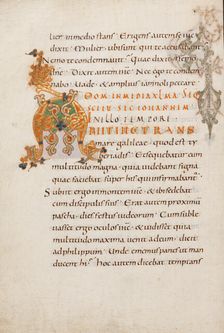 luer inmedio stans. Erigens autem se ihs
dixit ei. Mulier ubi sunt qui te accusabant
nemo te condemnavit. Quae dixit. Nemo
dne. Dixit autem ihs. Nec ego te condem
nabo. Vade & amplius iam noli peccare.
DOM IN MEDIA XLMA SEC
SCI EV SEC IOHANNEM
IN ILLO TEMPORE
ABIIT IHC TRANS
mare galileae quod est
tiberiadis. Et sequebatur eum
multitudo magna quia videbant signa
quae faciebat super his qui infirmabant.
Subiit ergo in montem ihs & ibi sedebat
cum discipulis suis. Erat autem proximum
pascha dies festus iudaeorum. Cum suble
vasset ergo oculos ihs & vidisset quia
multitudo maxima venit ad eum. dicit
ad philippum. Unde ememus panes ut man
ducent hi. Hoc autem dicebat temptans